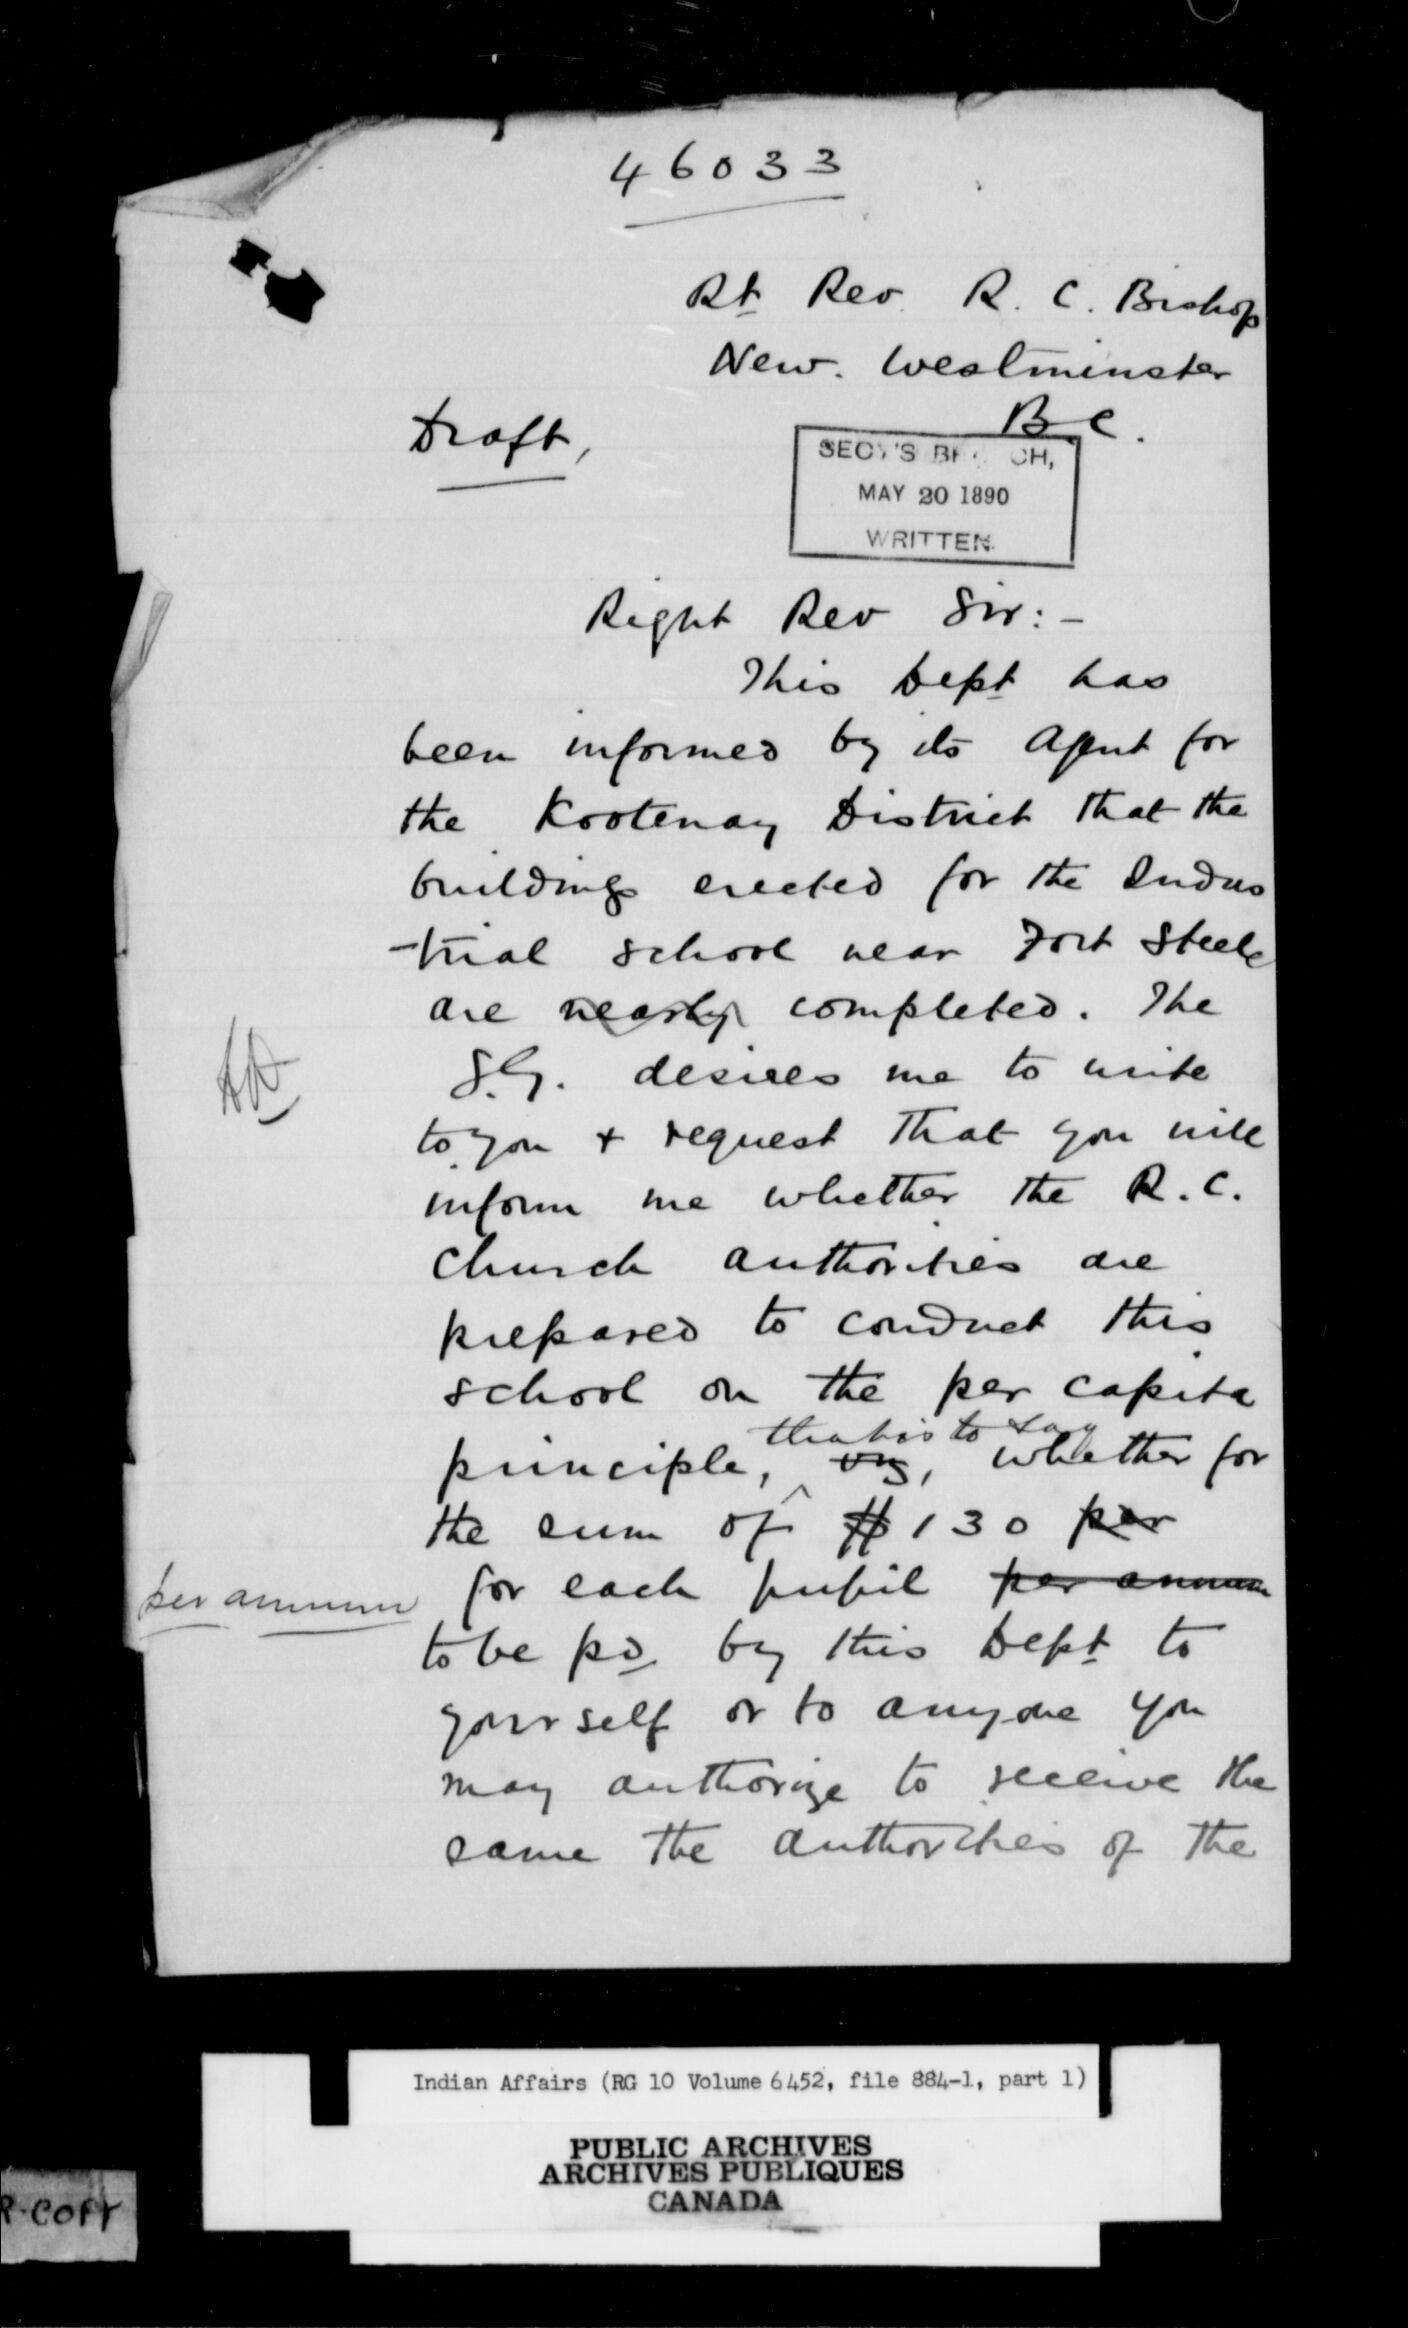 46033
Rt Rev. R. C. Bishop
New. Westminster
B C.
Draft,
SECY'S BRANCH,
MAY 20 1890
WRITTEN.
Right Rev Sir:-
This Dept has
been informed by its Agent for
the Kootenay District that the
buildings erected for the Indus
-trial school near Fort Steele
are nearly completed. The
S.G. desires me to write
to you + request that you will
inform me whether the R.C.
Church authorities are
prepared to conduct this
school on the per capita
that is to say
principle, viz, whether for
the sum of $130 per
per annum for each pupil per annum
to be pd by this Dept to
yourself or to anyone you
may authorize to receive the
same the authorities of the
Indian Affairs (RG 10 Volume 6452, file 884-1, part 1)
PUBLIC ARCHIVES
ARCHIVES PUBLIQUES
CANADA
R-COPY